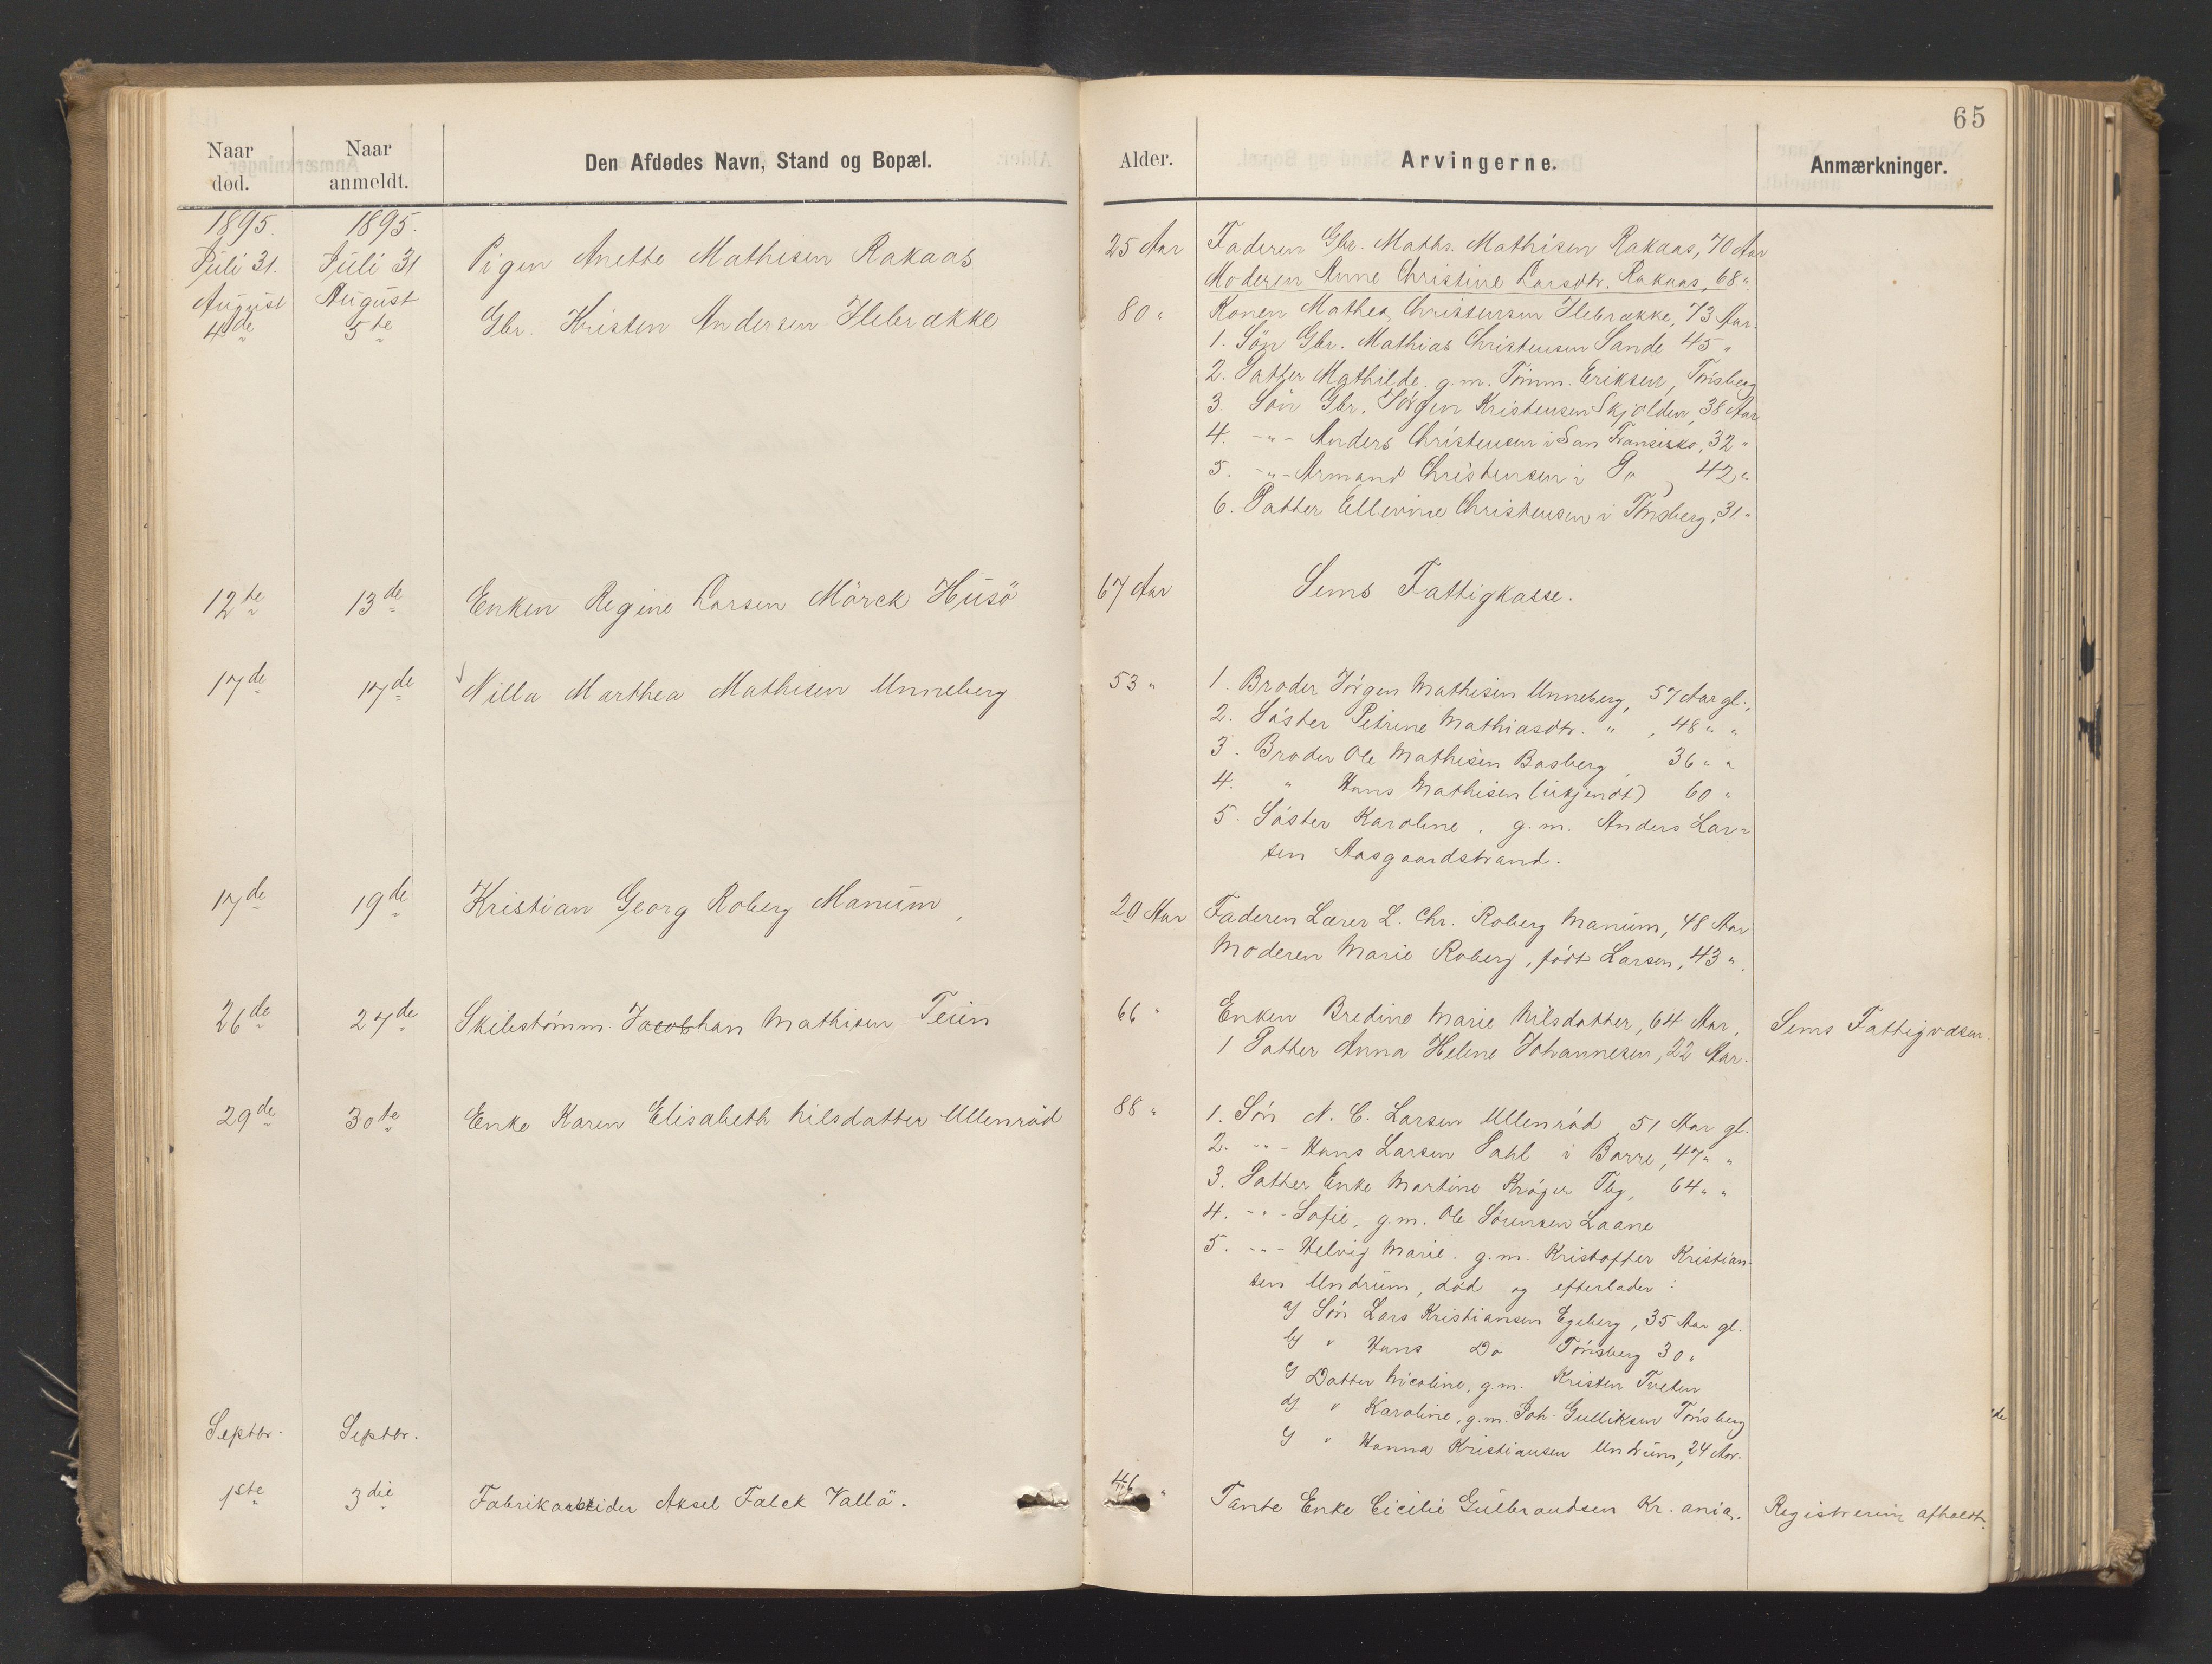 65
Naar død.
Naar anmeldt.
Den Afdødes Navn, Stand og Bopæl.
Alder.
Arvingerne.
Anmærkninger.
1895. 1895.
Juli 31. Juli 31 Pigen Anette Mathisen Rakaas 25 Aar Faderen Gbr. Maths. Mathisen Rakaas, 70 Aar
Moderen Anne Christine Larsdtr. Rakaas, 68 "
August August
4de 5te Gbr. Kristen Andersen Ilebrække 80 " Konen Mathea Christensen Ilebrække, 73 Aar.
1. Sön Gbr. Mathias Christensen Sande 45 "
2. Datter Mathilde g.m. Tömm. Eriksen, Tönsberg
3. Sön Gbr. Jörgen Kristensen Skjolden, 38 Aar
4. -"- Anders Christensen i San Fransisko, 32 "
5. -"- Armand Christensen i Do, 42 "
6. Datter Ellevine Christensen i Tönsberg, 31 "
12te 13de Enken Regine Larsen Mörck Husö 67 Aar Sems Fattigkasse.
17de 17de Nilla Marthea Mathisen Unneberg 53 " 1. Broder Jörgen Mathisen Unneberg, 57 Aar gl.,
2. Söster Petrine Mathiasdtr. " , 48 " "
3. Broder Ole Mathisen Basberg, 36 " "
4. " Hans Mathisen (ukjendt) 60 "
5. Söster Karoline, g.m. Anders Lar=
sen Aasgaardstrand.
17de 19de Kristian Georg Roberg Manum, 20 Aar Faderen Lærer L. Chr. Roberg Manum, 48 Aar
Moderen Marie Roberg, födt Larsen, 43 ".
26de 27de Skibstömm. Jacobhan Mathisen Teien 66 " Enken Bredine Marie Nilsdatter, 64 Aar, Sems Fattigvæsen.
1 Datter Anna Helene Johannesen, 22 Aar.
29de 30te Enke Karen Elisabeth Nilsdatter Ullenröd 88 " 1. Sön N. C. Larsen Ullenröd 51 Aar gl.
2. -"- Hans Larsen Dahl i Borre, 47 " "
3. Datter Enke Martine Kröger Tbg, 64 " "
4. -"- Sofie, g.m. Ole Sörensen Laane
5. -"- Helvig Marie. g.m. Kristoffer Kristian-
sen Undrum, död og efterlader:
a) Sön Lars Kristiansen Egeberg, 35 Aar gl.
b) " Hans Do Tönsberg 30 "
c) Datter Nicoline, g.m. Kristen Tveten
d) " Karoline, g.m. Joh. Gulliksen Tönsberg
e) " Hanna Kristiansen Undrum, 24 Aar.
Septbr. Septbr.
1ste 3die Fabrikarbeider Aksel Falck Vallö. 46 " Tante Enke Cicilie Gulbrandsen Kr.ania. Registrering afholdt.